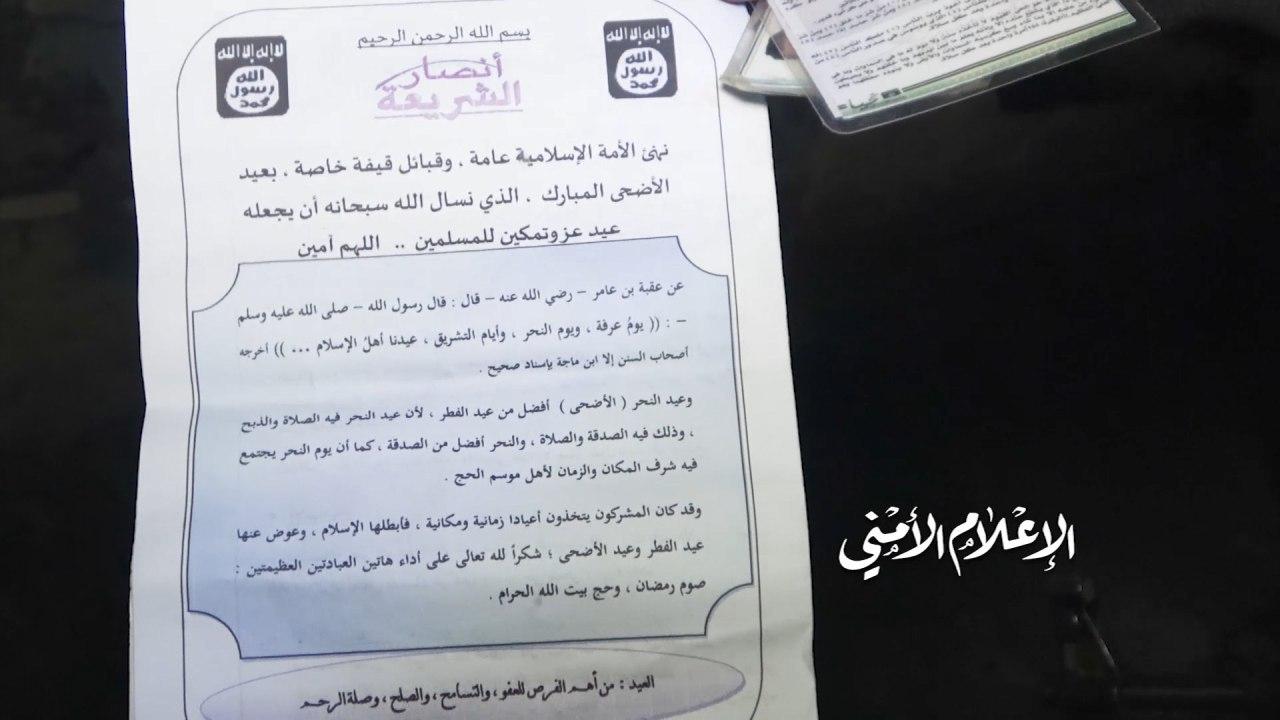 بسم الله الرحمن الرحيم
لا إله إلا الله
الله
رسول
محمد
لا إله إلا الله
الله
رسول
محمد
أنصار
الشريعة
نهنئ الأمة الإسلامية عامة ، وقبائل قيفة خاصة ، بعيد
الأضحى المبارك ، الذي نسال الله سبحانه أن يجعله
عيد عز وتمكين للمسلمين .. اللهم آمين
عن عقبة بن عامر – رضي الله عنه – قال : قال رسول الله – صلى الله عليه وسلم
– : (( يومُ عرفة ، ويوم النحر ، وأيام التشريق ، عيدنا أهلُ الإسلام ... )) أخرجه
أصحاب السنن إلا ابن ماجة بإسناد صحيح .
وعيد النحر ( الأضحى ) أفضل من عيد الفطر ، لأن عيد النحر فيه الصلاة والذبح
، وذلك فيه الصدقة والصلاة ، والنحر أفضل من الصدقة ، كما أن يوم النحر يجتمع
فيه شرف المكان والزمان لأهل موسم الحج .
وقد كان المشركون يتخذون أعيادا زمانية ومكانية ، فأبطلها الإسلام ، وعوض عنها
عيد الفطر وعيد الأضحى ؛ شكراً لله تعالى على أداء هاتين العبادتين العظيمتين :
صوم رمضان ، وحج بيت الله الحرام .
العيد : من أهم الفرص للعفو ، والتسامح ، والصلح ، وصلة الرحم
الإعلام الأمني